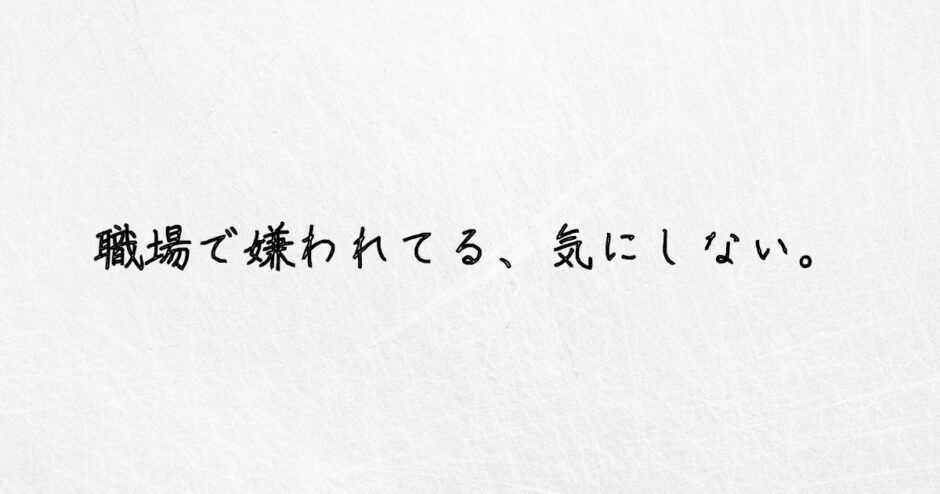 職場で嫌われてる、気にしない。